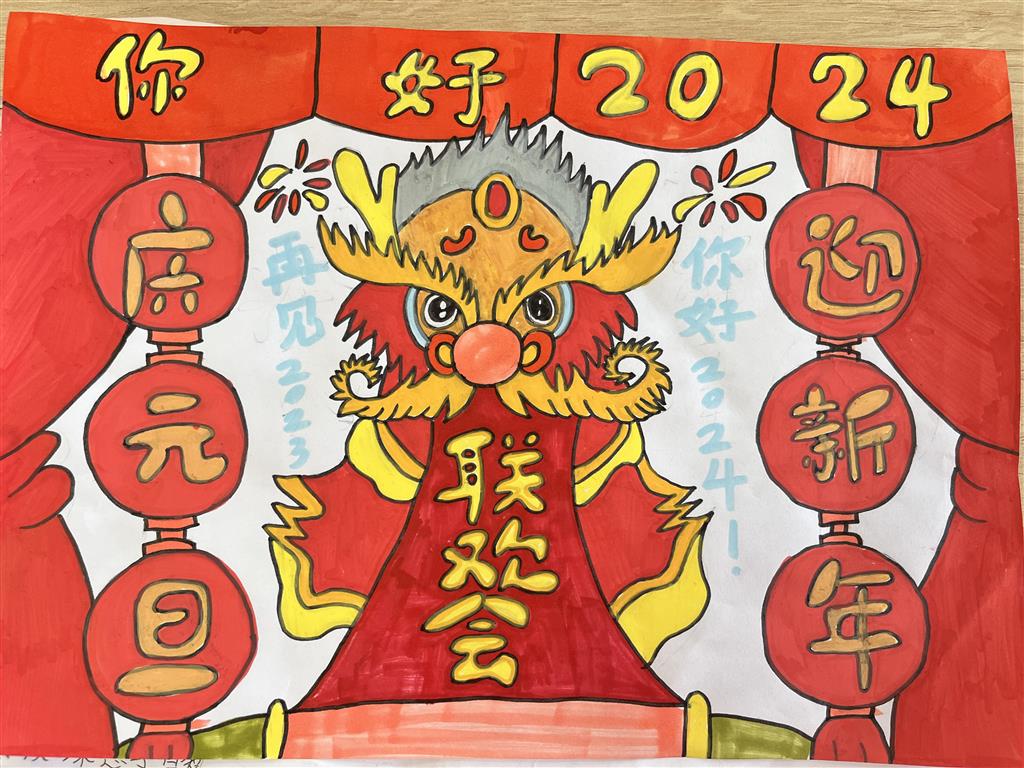 你好2024
庆元旦
再见2023
联欢会
你好2024!
迎新年